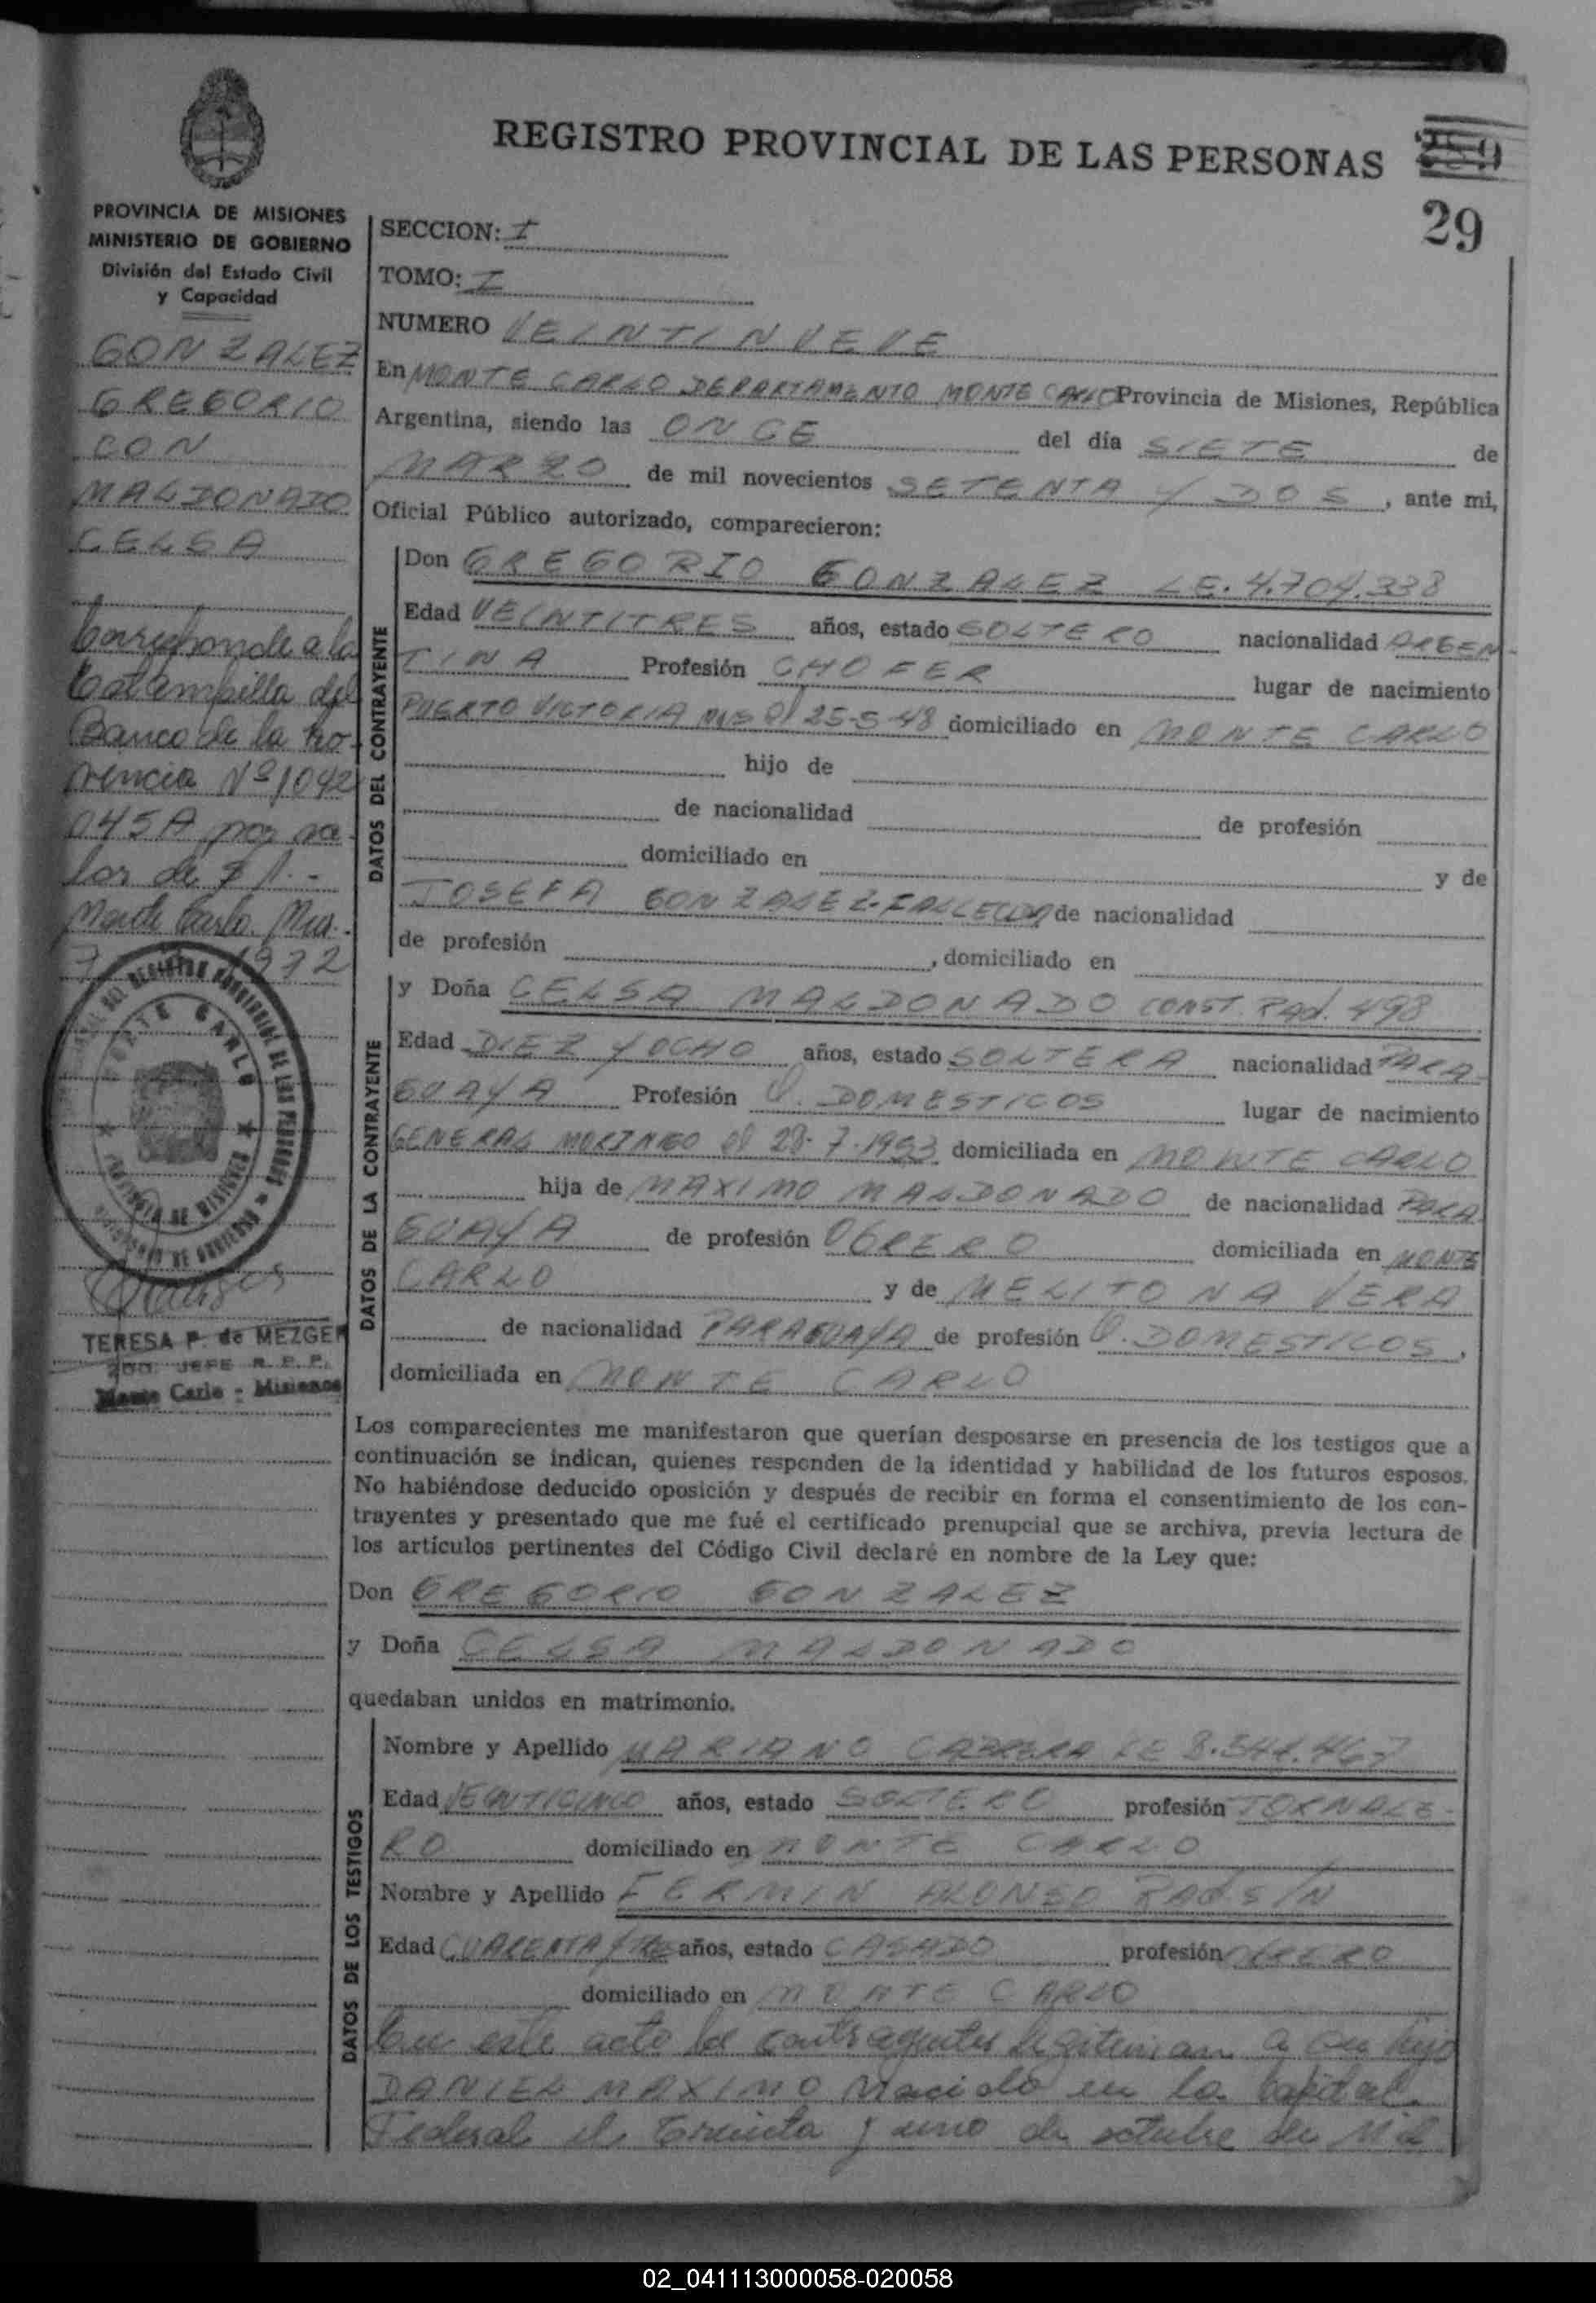 REGISTRO PROVINCIAL DE LAS PERSONAS
29
PROVINCIA DE MISIONES
MINISTERIO DE GOBIERNO
División del Estado Civil
y Capacidad
GONZALEZ
GREGORIO
CON
MALDONADO
CELSA
Corresponde a la
Estampilla del
Banco de la Pro-
vincia Nº 1042
045A por va-
lor de $ 1.-
Monte Carlo. Mnes.
7 1972
MONTE CARLO
TERESA P. de MEZGER
JEFE R. P. P.
Monte Carlo - Misiones
SECCION: I
TOMO: I
NUMERO VEINTINUEVE
En MONTE CARLO DEPARTAMENTO MONTE CARLO Provincia de Misiones, República
Argentina, siendo las ONCE del día SIETE de
MARZO de mil novecientos SETENTA Y DOS, ante mi,
Oficial Público autorizado, comparecieron:
DATOS DEL CONTRAYENTE
Don GREGORIO GONZALEZ LE. 4.704.338
Edad VEINTITRES años, estado SOLTERO nacionalidad ARGEN-
TINA Profesión CHOFER lugar de nacimiento
PUERTO VICTORIA MNS el 25-5-48 domiciliado en MONTE CARLO
hijo de
de nacionalidad de profesión
domiciliado en y de
JOSEFA GONZALEZ-FALLECIDA de nacionalidad
de profesión , domiciliado en
DATOS DE LA CONTRAYENTE
y Doña CELSA MALDONADO CONST. RAD. 498
Edad DIEZ Y OCHO años, estado SOLTERA nacionalidad PARA-
GUAYA Profesión Q. DOMESTICOS lugar de nacimiento
GENERAL MORINIGO el 28-7-1953 domiciliada en MONTE CARLO
hija de MAXIMO MALDONADO de nacionalidad PARA
GUAYA de profesión OBRERO domiciliada en MONTE
CARLO y de MELITONA VERA
de nacionalidad PARAGUAYA de profesión Q. DOMESTICOS,
domiciliada en MONTE CARLO
Los comparecientes me manifestaron que querían desposarse en presencia de los testigos que a
continuación se indican, quienes responden de la identidad y habilidad de los futuros esposos.
No habiéndose deducido oposición y después de recibir en forma el consentimiento de los con-
trayentes y presentado que me fué el certificado prenupcial que se archiva, previa lectura de
los artículos pertinentes del Código Civil declaré en nombre de la Ley que:
Don GREGORIO GONZALEZ
y Doña CELSA MALDONADO
quedaban unidos en matrimonio.
DATOS DE LOS TESTIGOS
Nombre y Apellido MARIANO CABRERA LE 8.341.467
Edad VEINTICINCO años, estado SOLTERO profesión JORNALE-
RO domiciliado en MONTE CARLO
Nombre y Apellido FERMIN ALONSO
Edad CUARENTA Y TRES años, estado CASADO profesión OBRERO
domiciliado en MONTE CARLO
En este acto los contrayentes legitiman a su hijo
DANIEL MAXIMO nacido en la Capital
Federal el treinta y uno de octubre de Mil
02_041113000058-020058